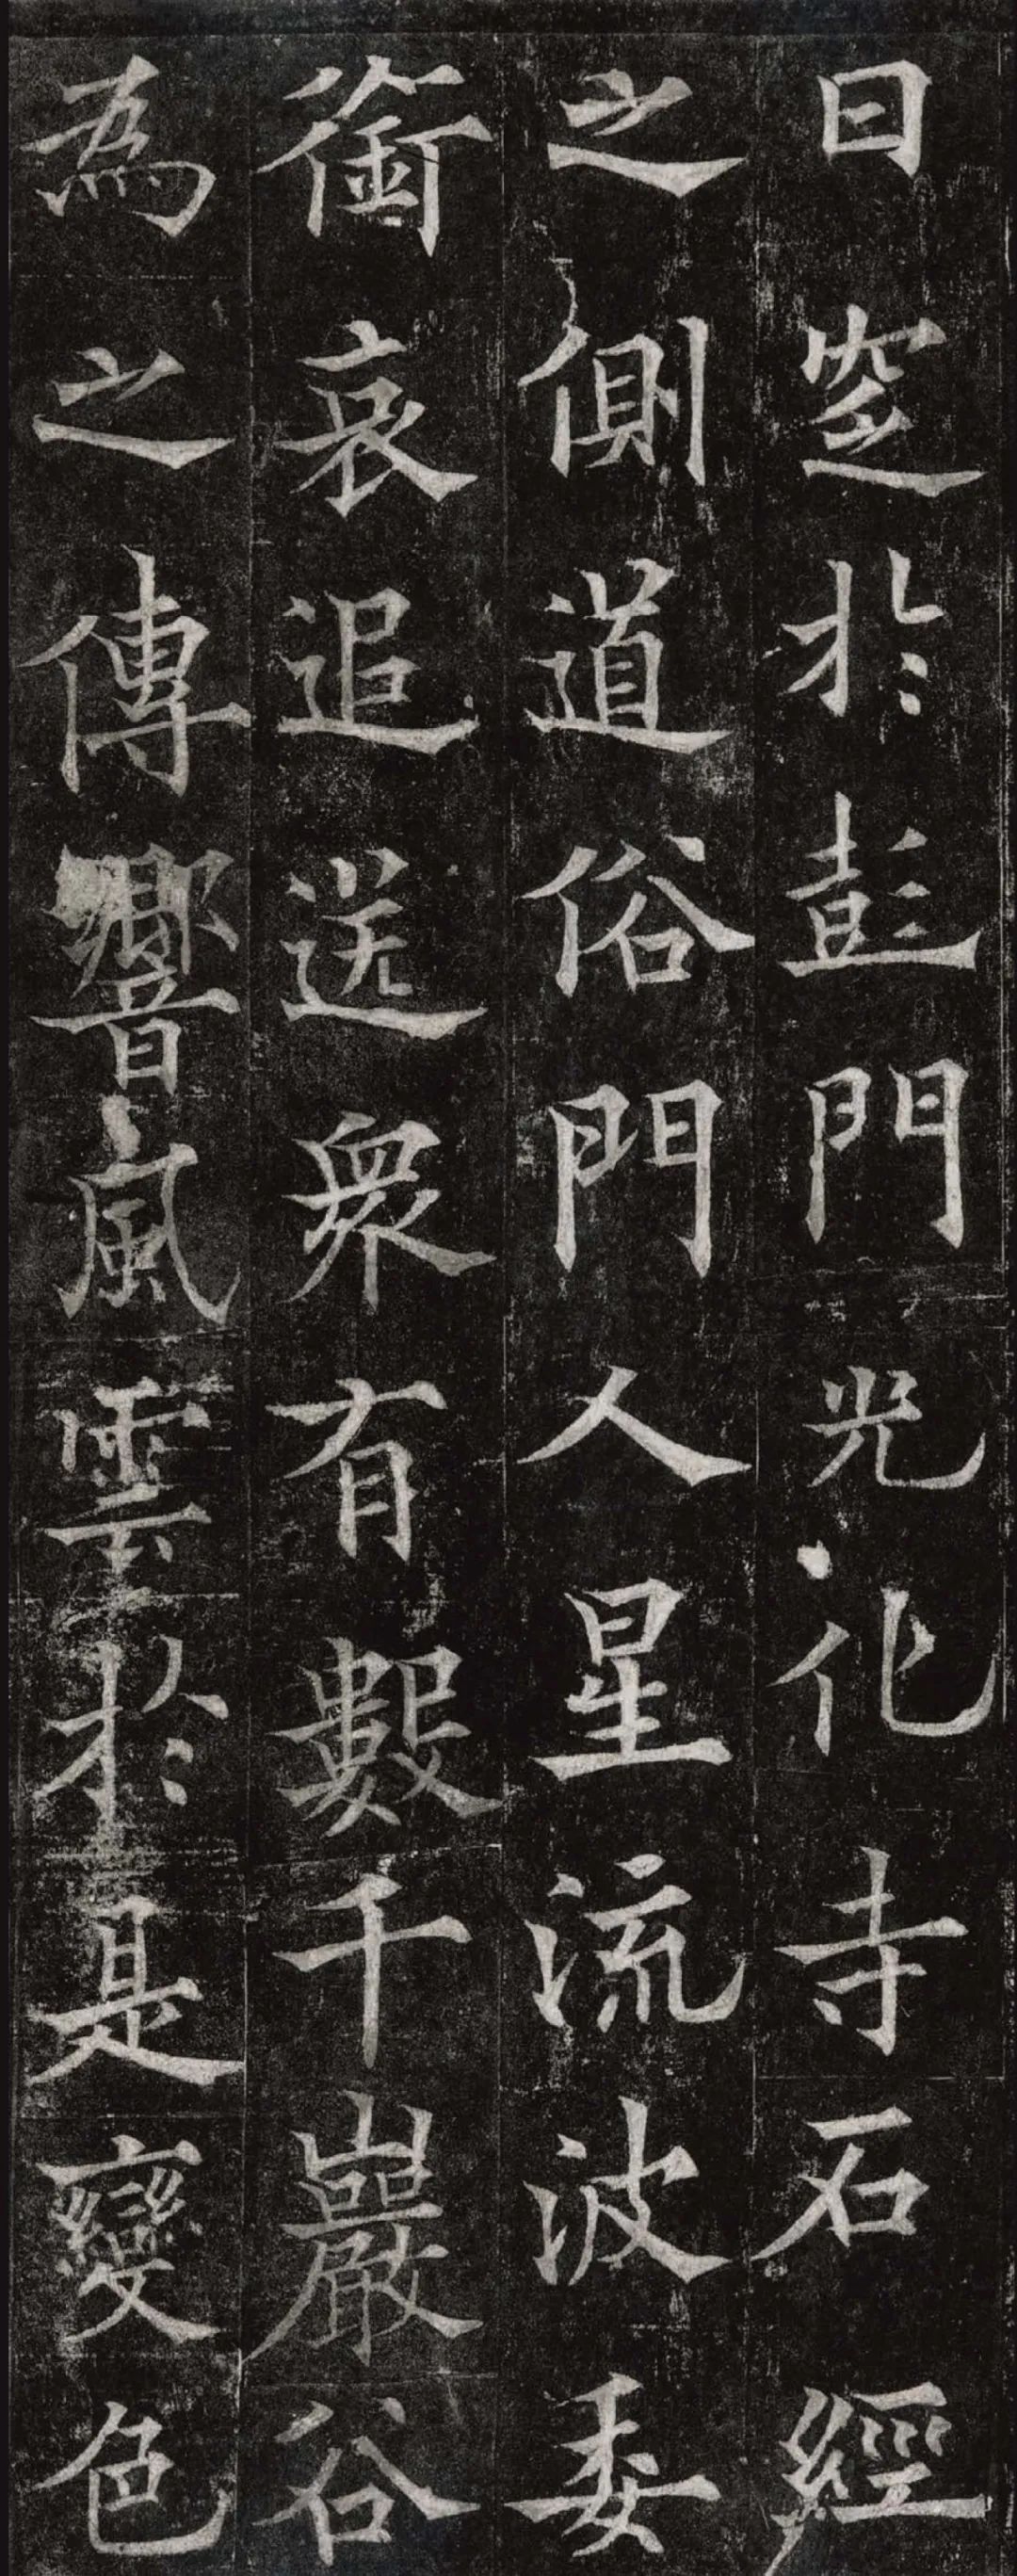 日窆於彭門光化寺石經
之側道俗門人星流波委
銜哀追送眾有數千巖谷
為之傳響風雲於是變色